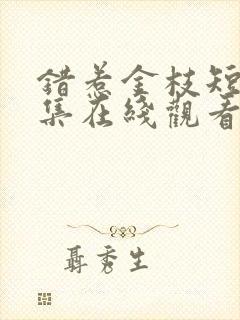 錯惹金枝短
集在綫觀看
聶秀生